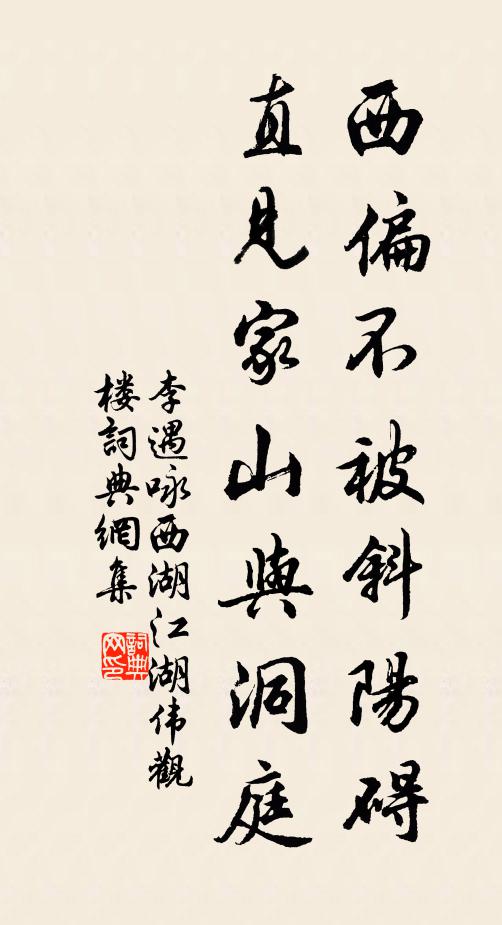 西偏不被斜陽碍
直見家山與洞庭
李遇咏西湖江湖伟觀
楼詞典網集
詞典网印